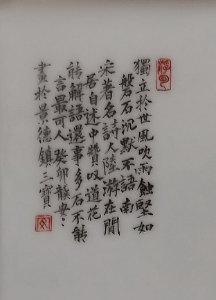 獨立於世風吹雨蝕堅如
磐石沉默不語南
宋著名詩人陸游在閒
居自述中贊叹道花
能解語還事多石不能
言最可人癸卯馥安
畫於景德鎮三寶